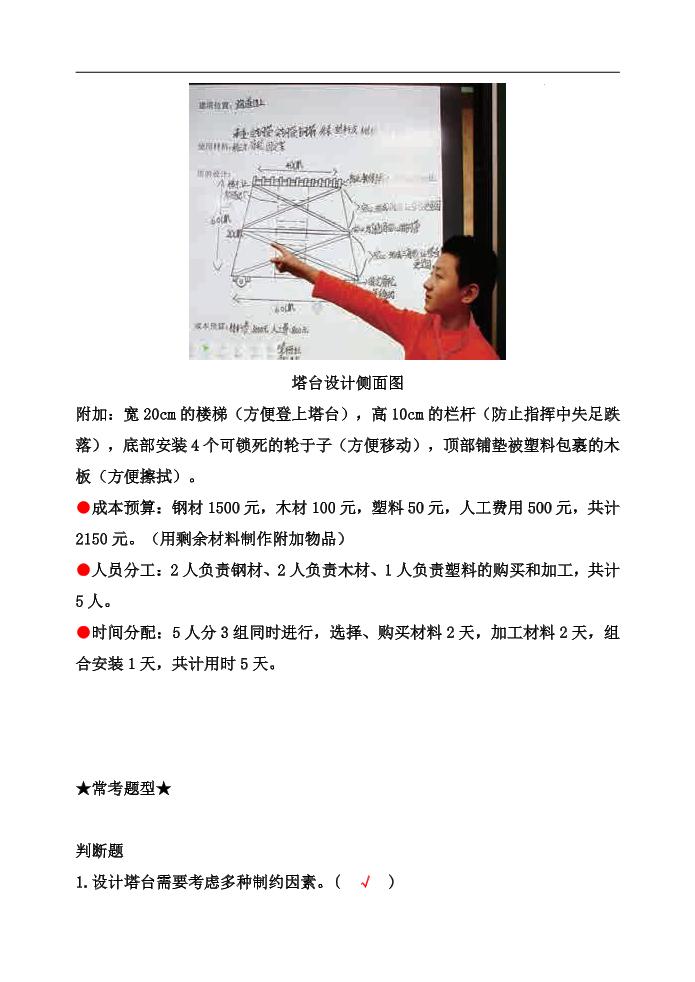 建塔位置：
使用材料：
塔的设计：
60cm
成本预算：
塔台设计侧面图
附加：宽 20cm 的楼梯（方便登上塔台），高 10cm 的栏杆（防止指挥中失足跌
落），底部安装 4 个可锁死的轮于子（方便移动），顶部铺垫被塑料包裹的木
板（方便擦拭）。
●成本预算：钢材 1500 元，木材 100 元，塑料 50 元，人工费用 500 元，共计
2150 元。（用剩余材料制作附加物品）
●人员分工：2 人负责钢材、2 人负责木材、1 人负责塑料的购买和加工，共计
5 人。
●时间分配：5 人分 3 组同时进行，选择、购买材料 2 天，加工材料 2 天，组
合安装 1 天，共计用时 5 天。
★常考题型★
判断题
1.设计塔台需要考虑多种制约因素。( √ )